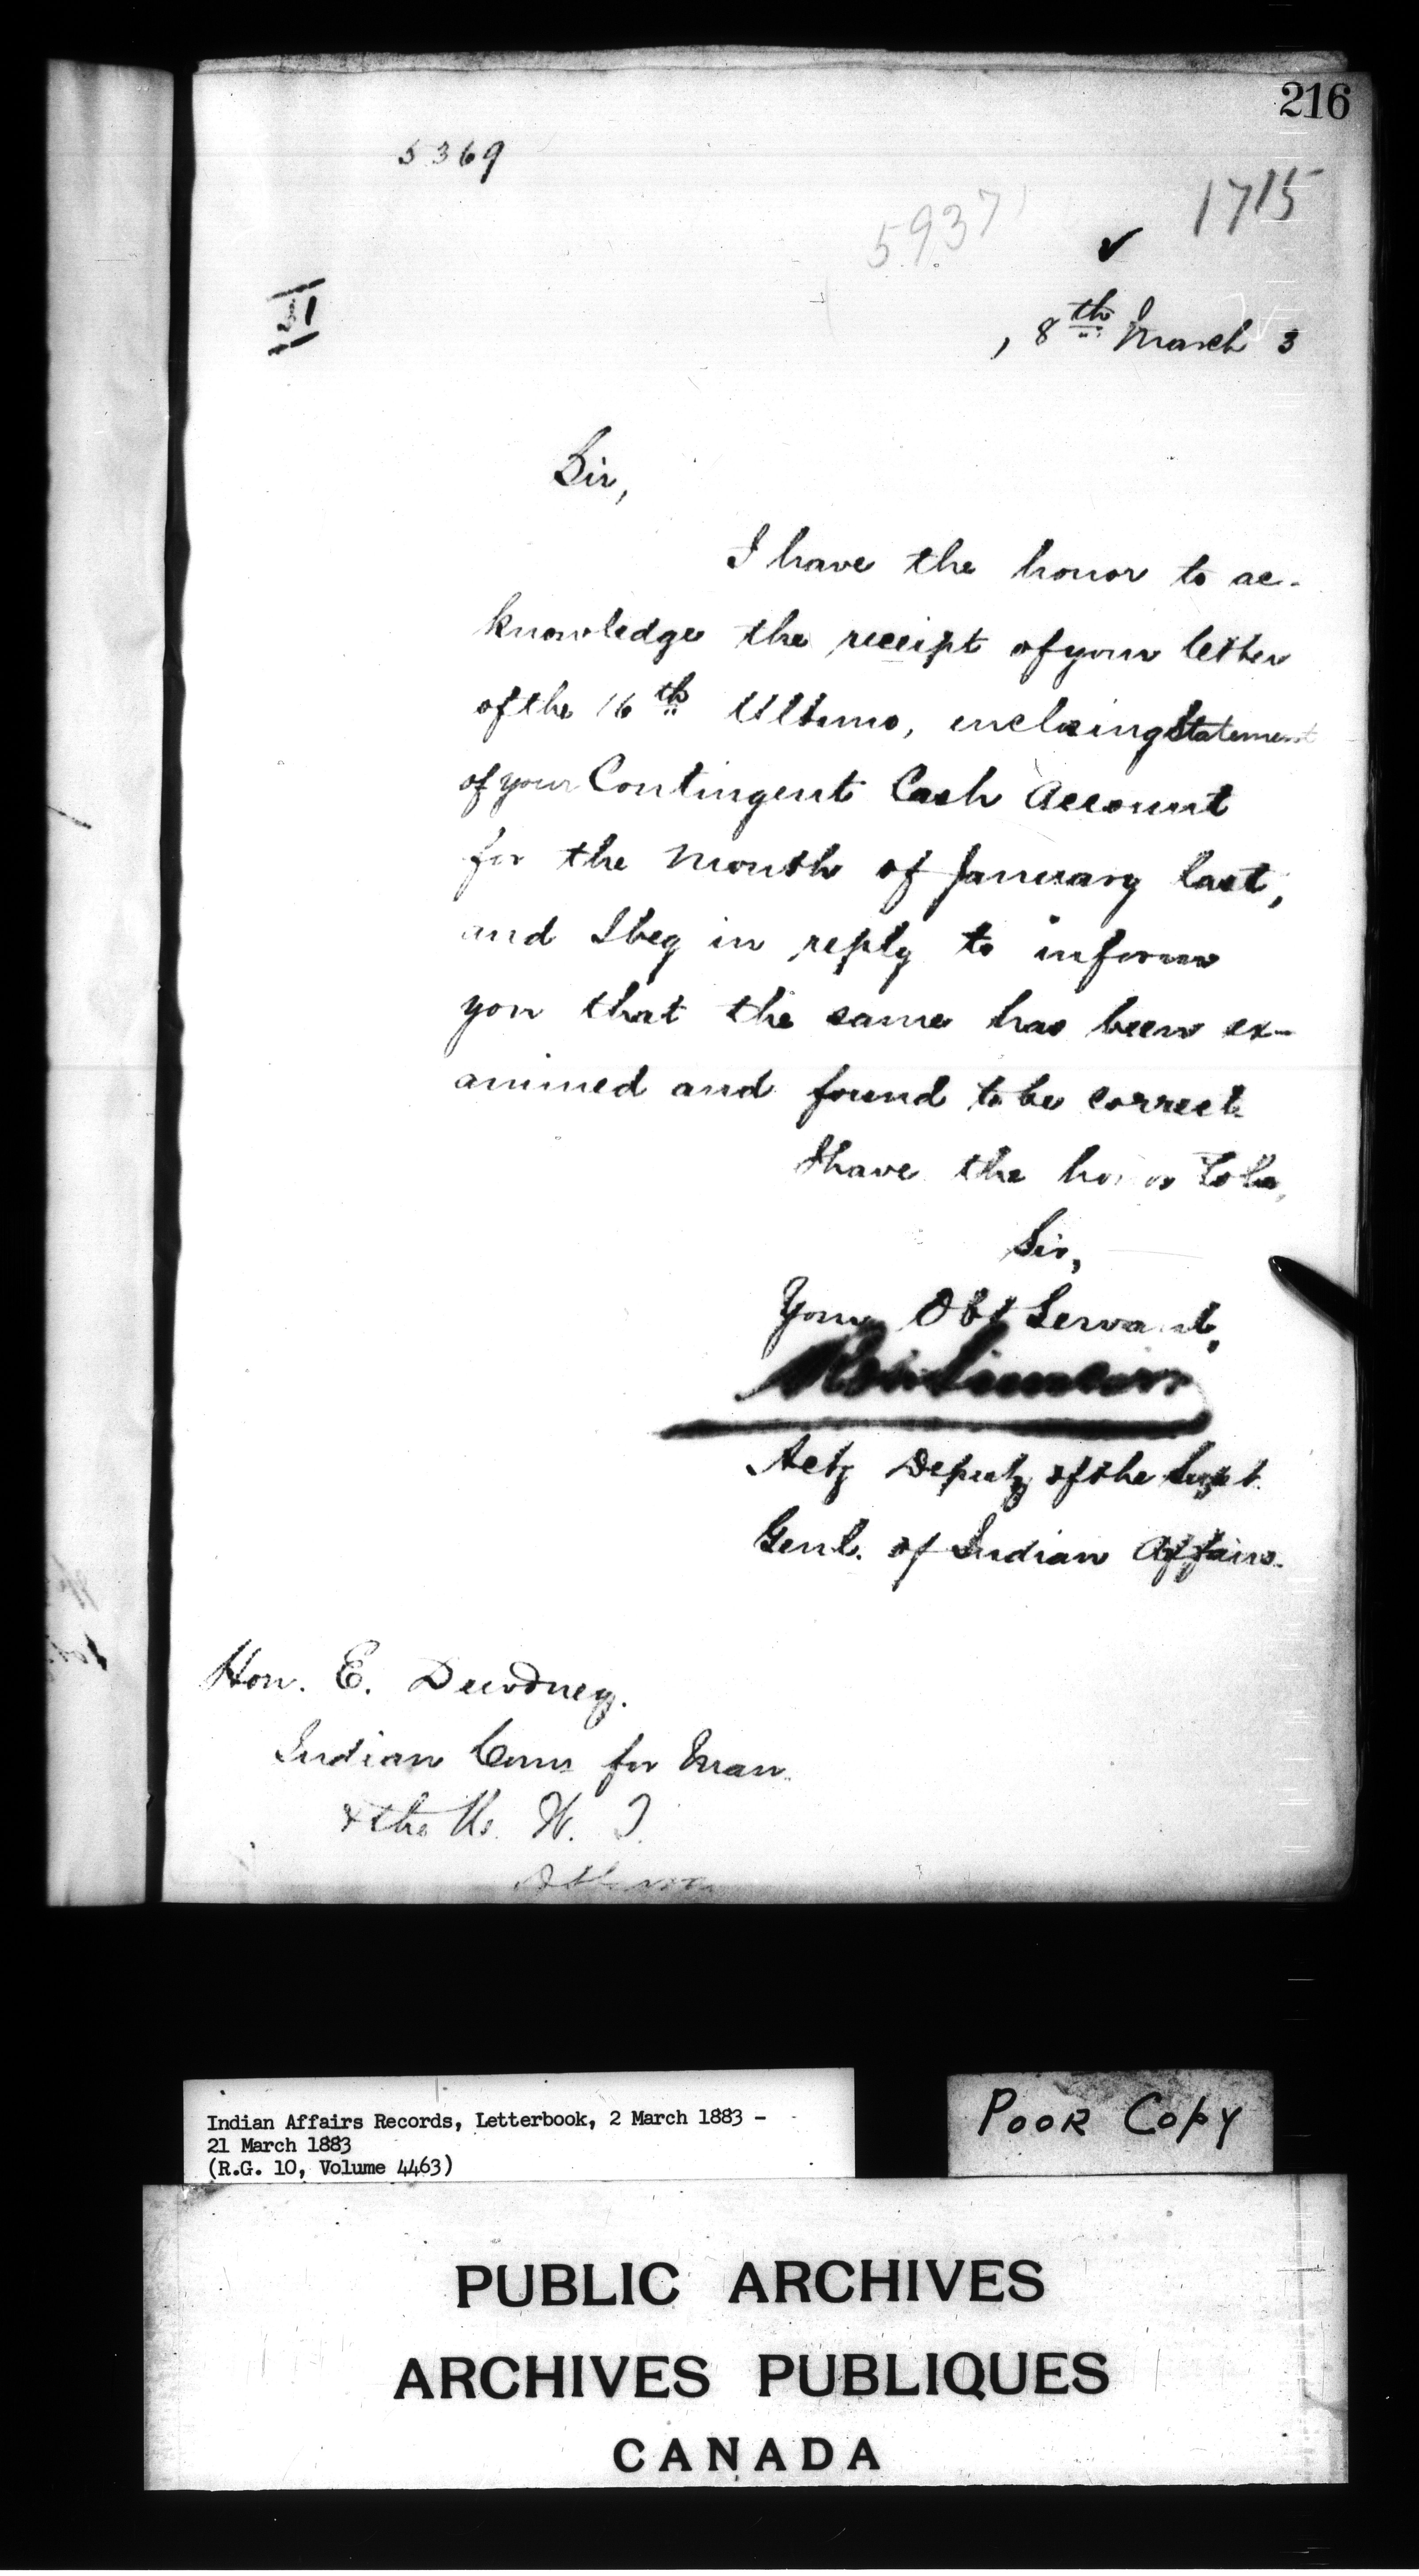 216
5369
1715
5937
31
, 8th March 3
Sir,
I have the honor to ac-
knowledge the receipt of your letter
of the 16th Ultimo, enclosing Statement
of your Contingent Cash Account
for the Month of January last,
and I beg in reply to inform
you that the same has been ex-
amined and found to be correct
I have the honor to be,
Sir,
Your Obt Servant,
Actg Deputy of the Supt
Genl. of Indian Affairs.
Hon. E. Dewdney.
Indian Comr for Man.
& the N. W. T.
Ottawa
Indian Affairs Records, Letterbook, 2 March 1883 -
21 March 1883
(R.G. 10, Volume 4463)
POOR COPY
PUBLIC ARCHIVES
ARCHIVES PUBLIQUES
CANADA